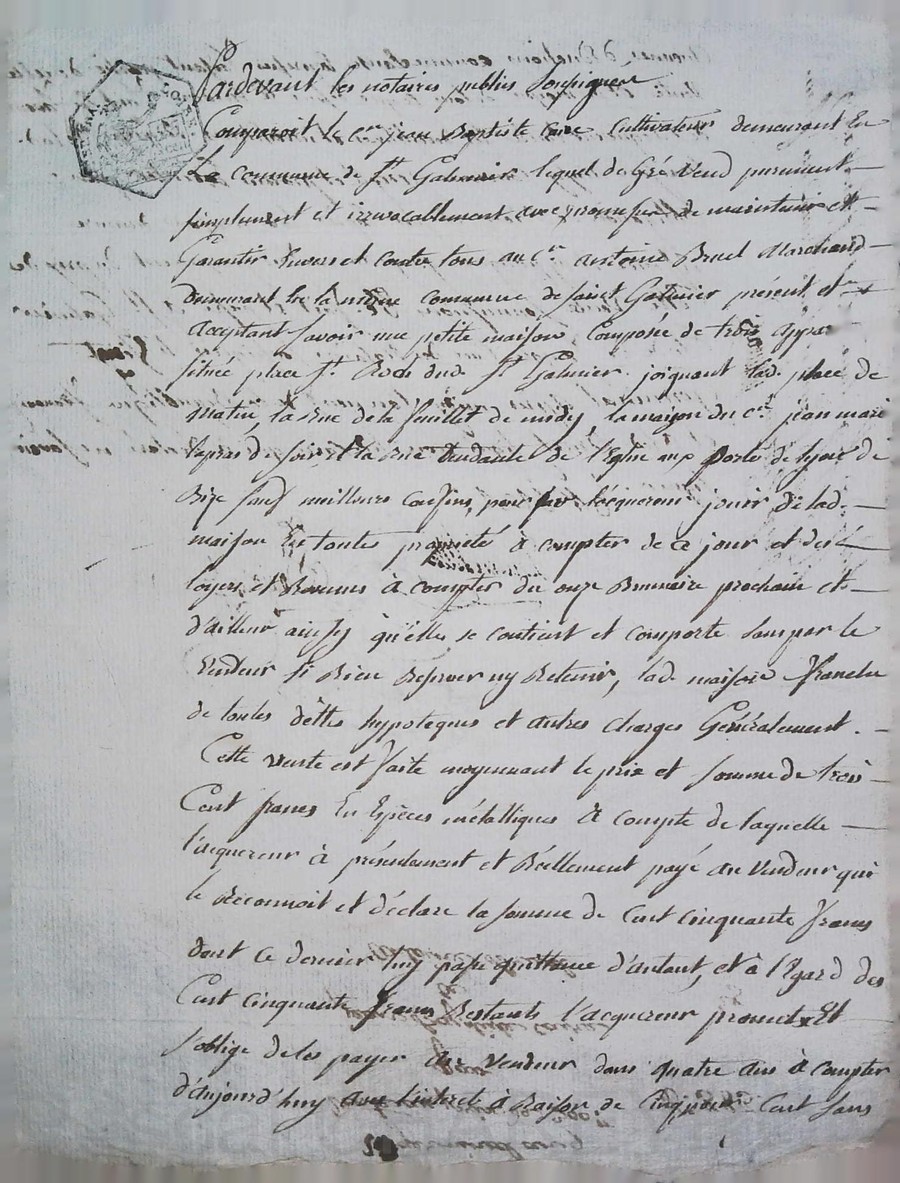 Pardevant les notaires publics soussignés
Comparoit le c.en jean Baptiste Cture Cultivateur demeurant En
La commune de St Galmier lequel de Gré Vend purement
simplement et irrevocablement avec promesse de maintenir et
Garantir Envers et Contre tous au c.en antoine Bruel Marchand
demeurant En la même commune de saint Galmier présent et
Acceptant savoir une petite maison Composée de trois appar
sitüée place St Roch dud. St Galmier joignant lad. place de
matin, la rue de la feuillet de midy, la maison du c.en jean marie
de soir, et la rue tendante de l'Eglise aux porte de lyon de
Bize sauf meilleurs Confins, pour par lacquereur jouir de lad.
maison En toutes propriétés à compter de ce jour et des
loyers et Revenus à compter du onze Brumaire prochain et
d'ailleur ainsy qu'elle se contient et comporte sans par le
Vendeur si Rien Reserver ny Retenir, lad. maison franche
de toutes dettes hypoteques et autres charges Généralement.
Cette vente est faite moyennant le prix et somme de trois
Cent francs En Espèces métalliques A compte de laquelle
l'acquereur à présentement et Réellement payé au Vendeur qui
le Reconnoit et déclare la somme de Cent Cinquante francs
dont ce dernier luy passe quittance d'autant, et à l'Egard des
Cent Cinquante francs Restants l'acquereur promet Et
s'oblige de les payer au Vendeur dans quatre ans à compter
d'aujourd'huy avec l'interet à Raison de Cinq pour Cent sans